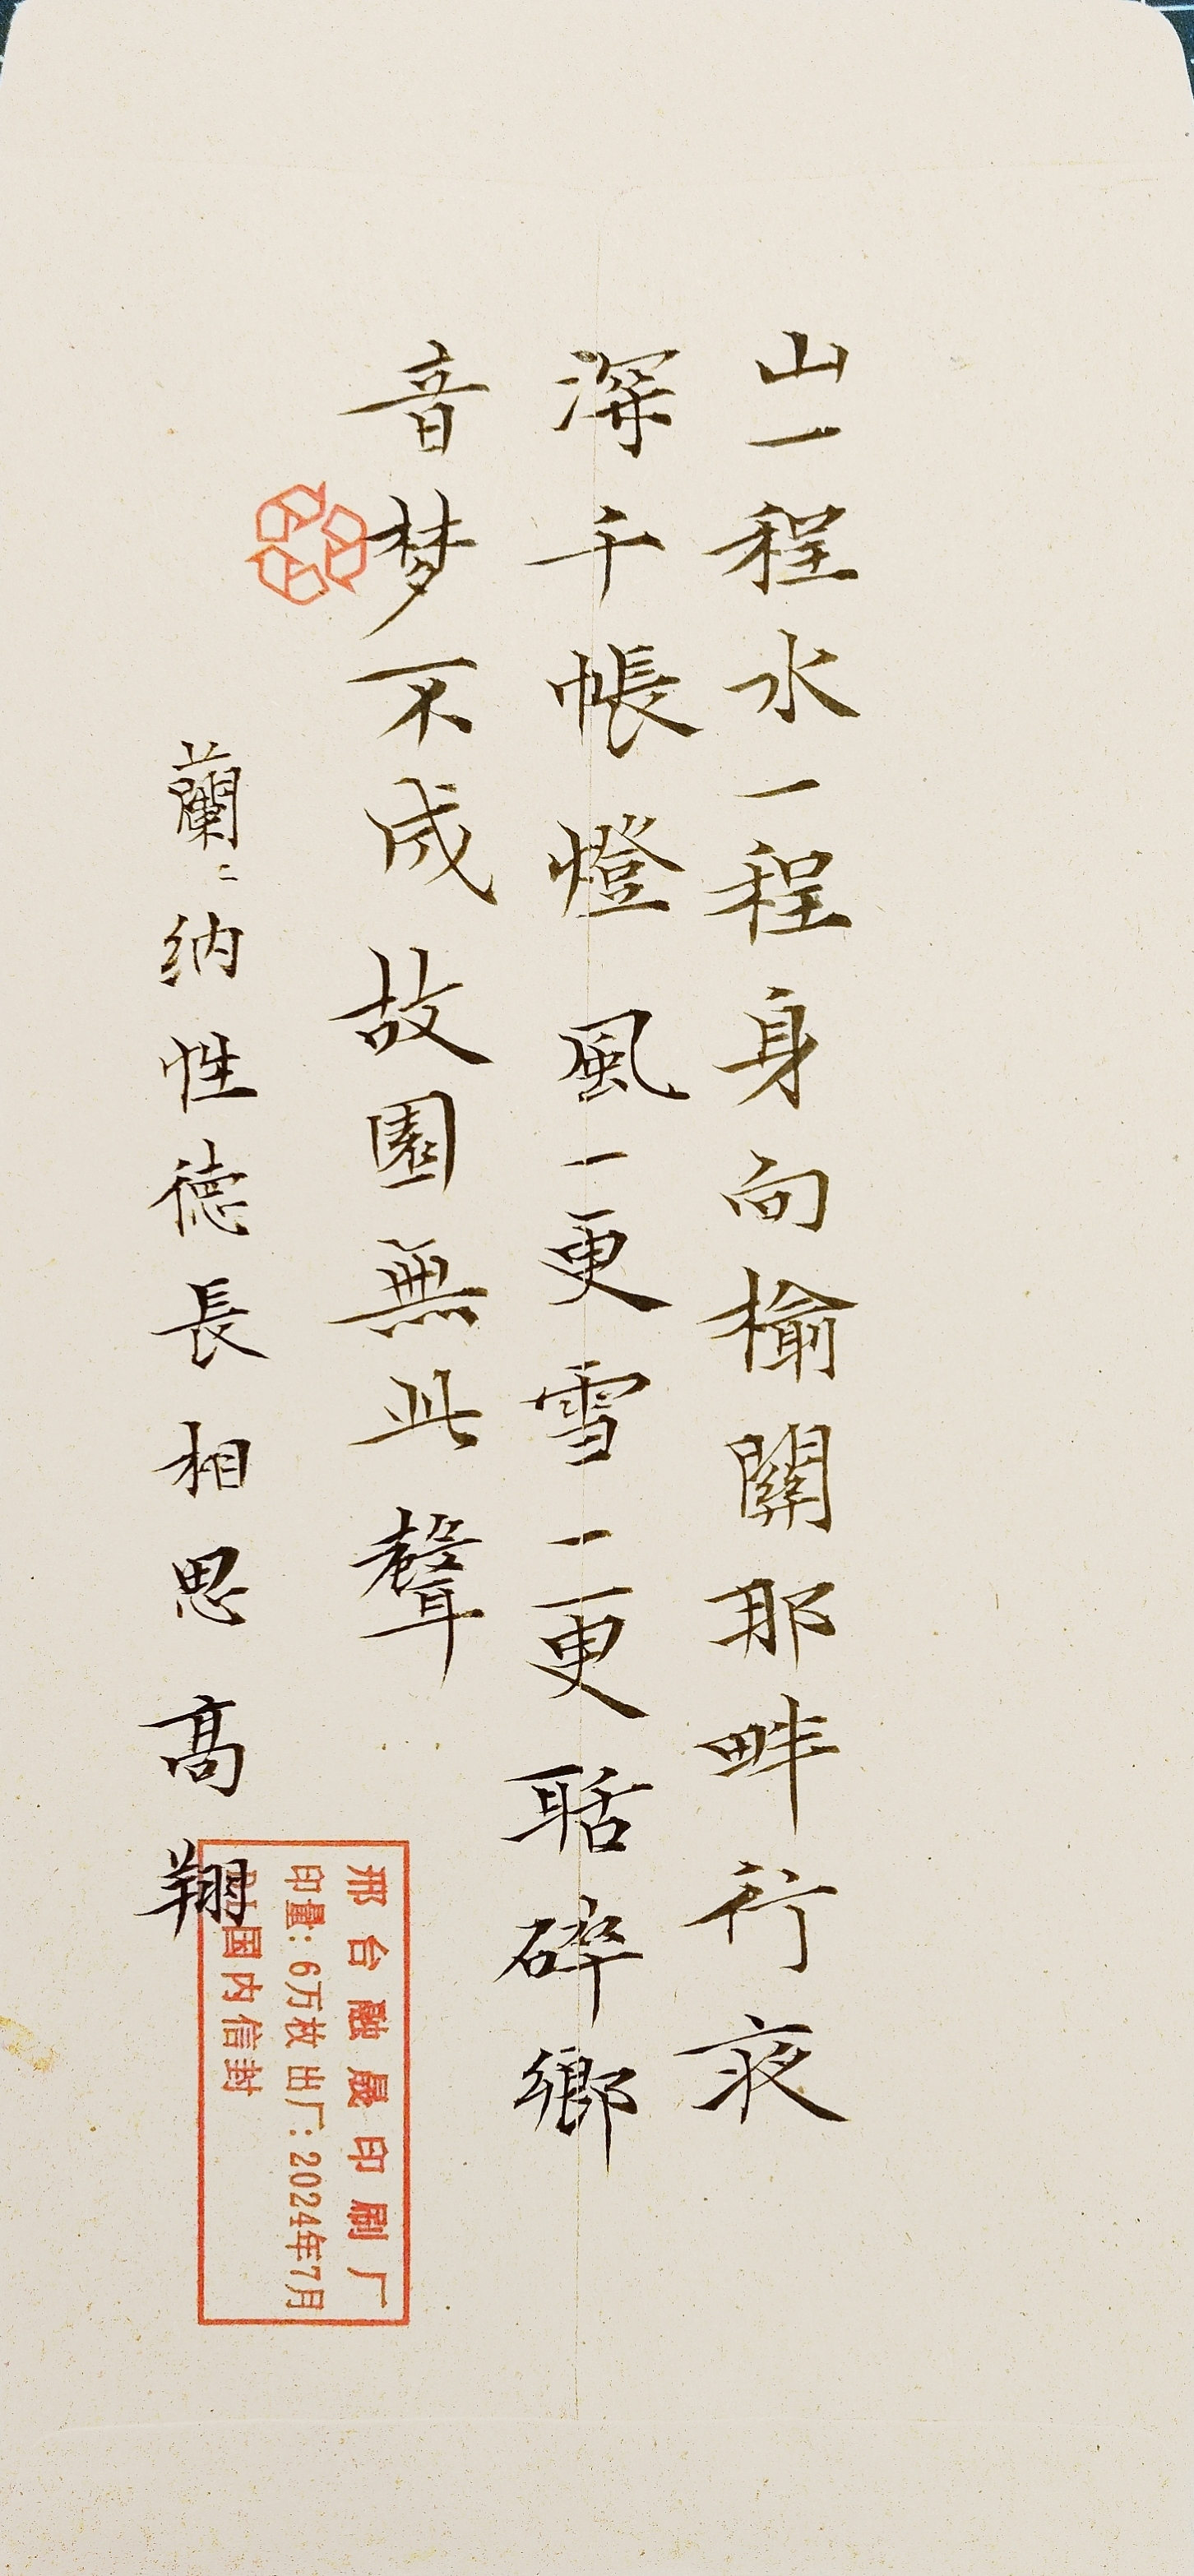 山一程水一程身向榆關那畔行夜
深千帳燈風一更雪一更聒碎鄉
音梦不成故園無此聲
蘭〻纳性德長相思高翔
邢台融晟印刷厂
印量：6万枚 出厂：2024年7月
国内信封